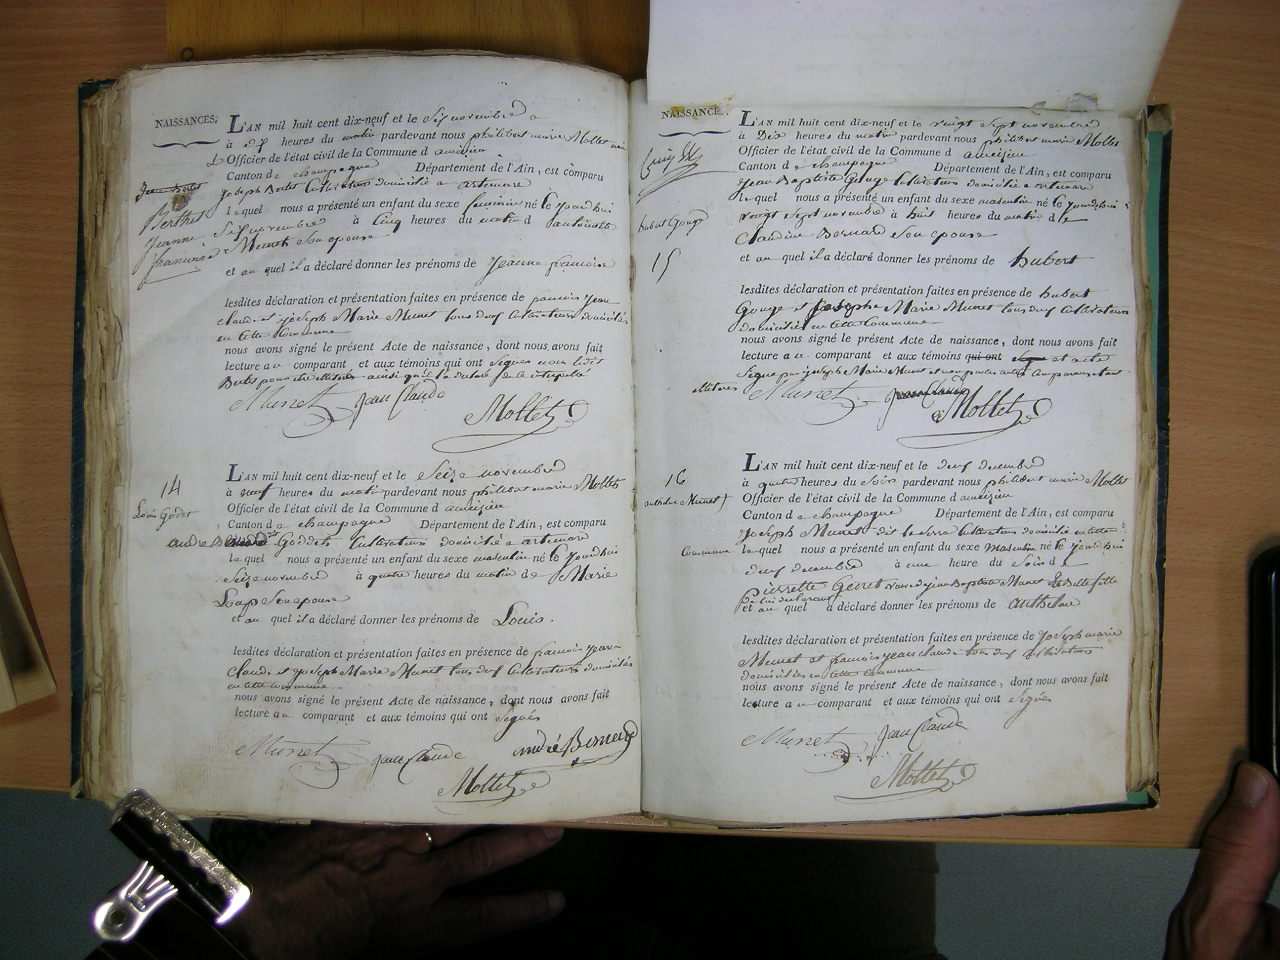 NAISSANCES.
L'AN mil huit cent dix-neuf et le Six novembre
à dix heures du matin pardevant nous philibert marie Mollet
Officier de l'état civil de la Commune d
Canton de champagne Département de l'Ain, est comparu
Joseph Bertet Cultivateur domicilié a artemare
Lequel nous a présenté un enfant du sexe feminin né le Jourdhui
Six novembre à Cinq heures du matin d
Munet Son epouse
et auquel il a déclaré donner les prénoms de Jeanne francoise
Berthet
Jeanne
francoise
lesdites déclaration et présentation faites en présence de francois jean
claude et joseph Marie Munet tous deux Cultivateurs domiciliés
en cette Commune
nous avons signé le présent Acte de naissance, dont nous avons fait
lecture au comparant et aux témoins qui ont
Munet jean Claude
Mollet
14
Louis Godet
L'AN mil huit cent dix-neuf et le Seize novembre
à neuf heures du matin pardevant nous philibert marie Mollet
Officier de l'état civil de la Commune d
Canton de champagne Département de l'Ain, est comparu
andre Goddet Cultivateur domicilié a artemare
Lequel nous a présenté un enfant du sexe masculin né le Jourdhui
Seize novembre à quatre heures du matin de Marie
Son epouse
et au quel il a déclaré donner les prénoms de Louis.
lesdites déclaration et présentation faites en présence de francois jean
claude et joseph Marie Munet tous deux Cultivateurs domiciliés
en cette Commune
nous avons signé le présent Acte de naissance, dont nous avons fait
lecture au comparant et aux témoins qui ont Signés
Munet jean Claude andré Bernerd
Mollet
NAISSANCE.
L'AN mil huit cent dix-neuf et le vingt sept novembre
à Dix heures du matin pardevant nous philibert marie Mollet
Officier de l'état civil de la Commune d
Canton de champagne Département de l'Ain, est comparu
Jean Baptiste Gouge Cultivateur domicilié a artemare
Lequel nous a présenté un enfant du sexe masculin né le Jourdhui
vingt sept novembre à huit heures du matin de
Claudine Bernard Son epouse
et au quel il a déclaré donner les prénoms de hubert
hubert Gouge
15
lesdites déclaration et présentation faites en présence de hubert
Gouge et Josephe Marie Munet tous deux Cultivateurs
domiciliés en cette Commune
nous avons signé le présent Acte de naissance, dont nous avons fait
lecture au comparant et aux témoins qui ont
Munet jean Claude
Mollet
16
L'AN mil huit cent dix-neuf et le deux decembre
à quatre heures du Soir pardevant nous philibert marie Mollet
Officier de l'état civil de la Commune d
Canton de champagne Département de l'Ain, est comparu
Joseph Munet dit Cultivateur domicilié en cette
Commune Lequel nous a présenté un enfant du sexe Masculin né le Jourdhui
deux decembre à une heure du Soir de
Pierrette jean Baptiste Munet Belle fille
et au quel a déclaré donner les prénoms de anthelme
lesdites déclaration et présentation faites en présence de Joseph marie
Munet et francois jean claude tous deux Cultivateurs
domiciliés en cette Commune
nous avons signé le présent Acte de naissance, dont nous avons fait
lecture au comparant et aux témoins qui ont Signés
Munet jean Claude
Mollet